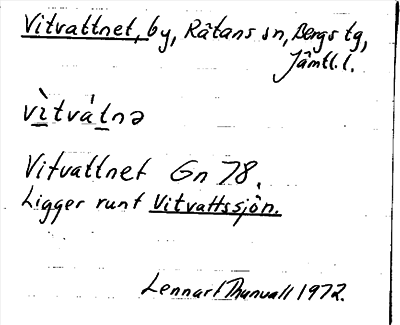 Vitvattnet, by, Råtans sn, Bergs tg,
Jämtl. l.
vìtvát̲nə
Vitvattnet Gn 78.
Ligger runt Vitvattssjön.
Lennart Thunvall 1972.